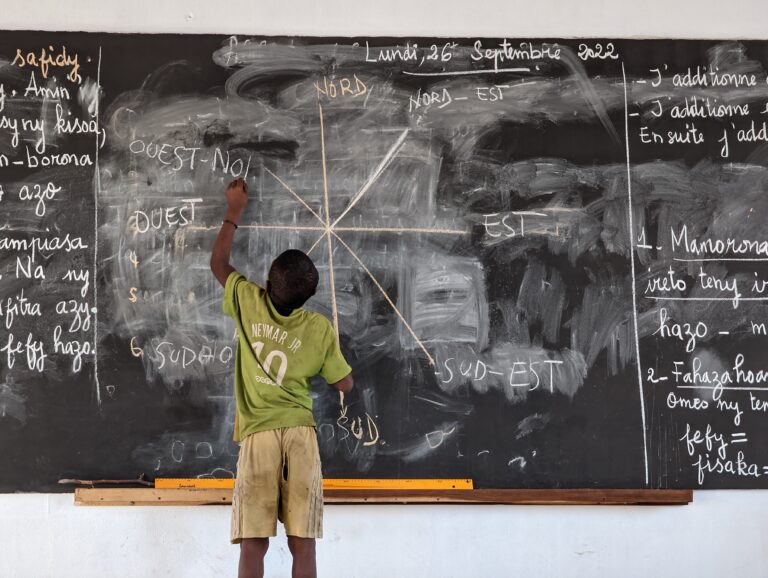 safidy.
y. Amin'
n-borona
azo
ampiasa
. Na ny
fitra azy.
fefy hazo.
Lundi, 26 Septembre 2022
NORD
NORD-EST
OUEST-NO
OUEST
EST
6
SUD-EST
SUD
NEYMAR JR
10
- J'additionne
- J'additionne
Ensuite j'add
1. Mamorona
ireto teny
hazo - m
2- Fahazahoa
ny ten
fefy =
fisaka =